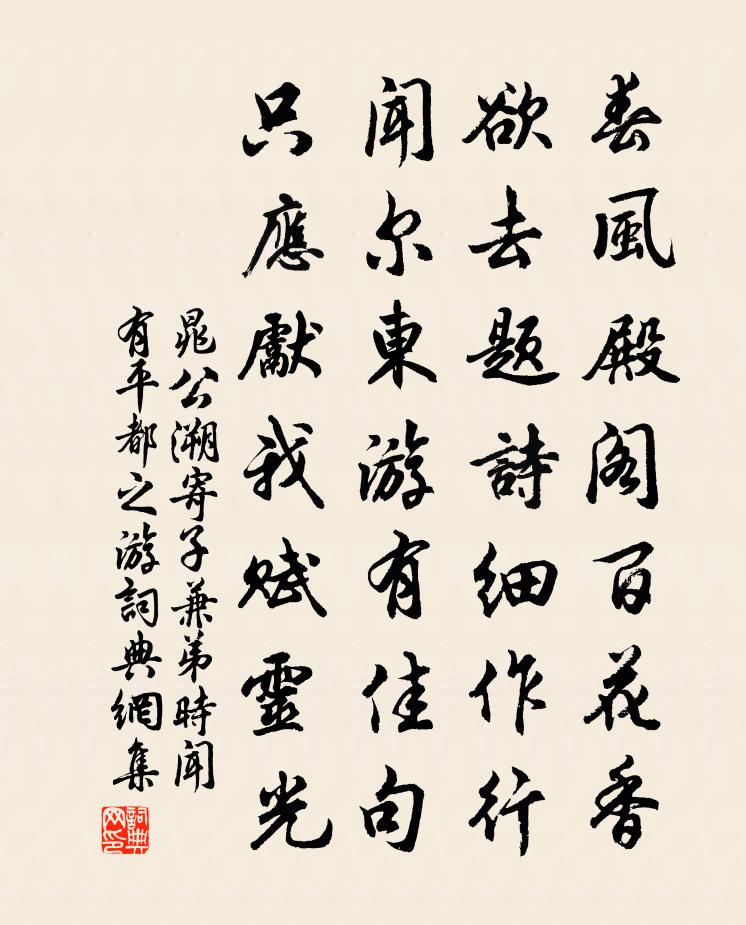 春風殿閣百花香
欲去题詩細作行
聞尔東游有佳句
只應獻我賦靈光
晁公溯寄子兼弟時聞
有平都之游詞典網集
詞典
网印